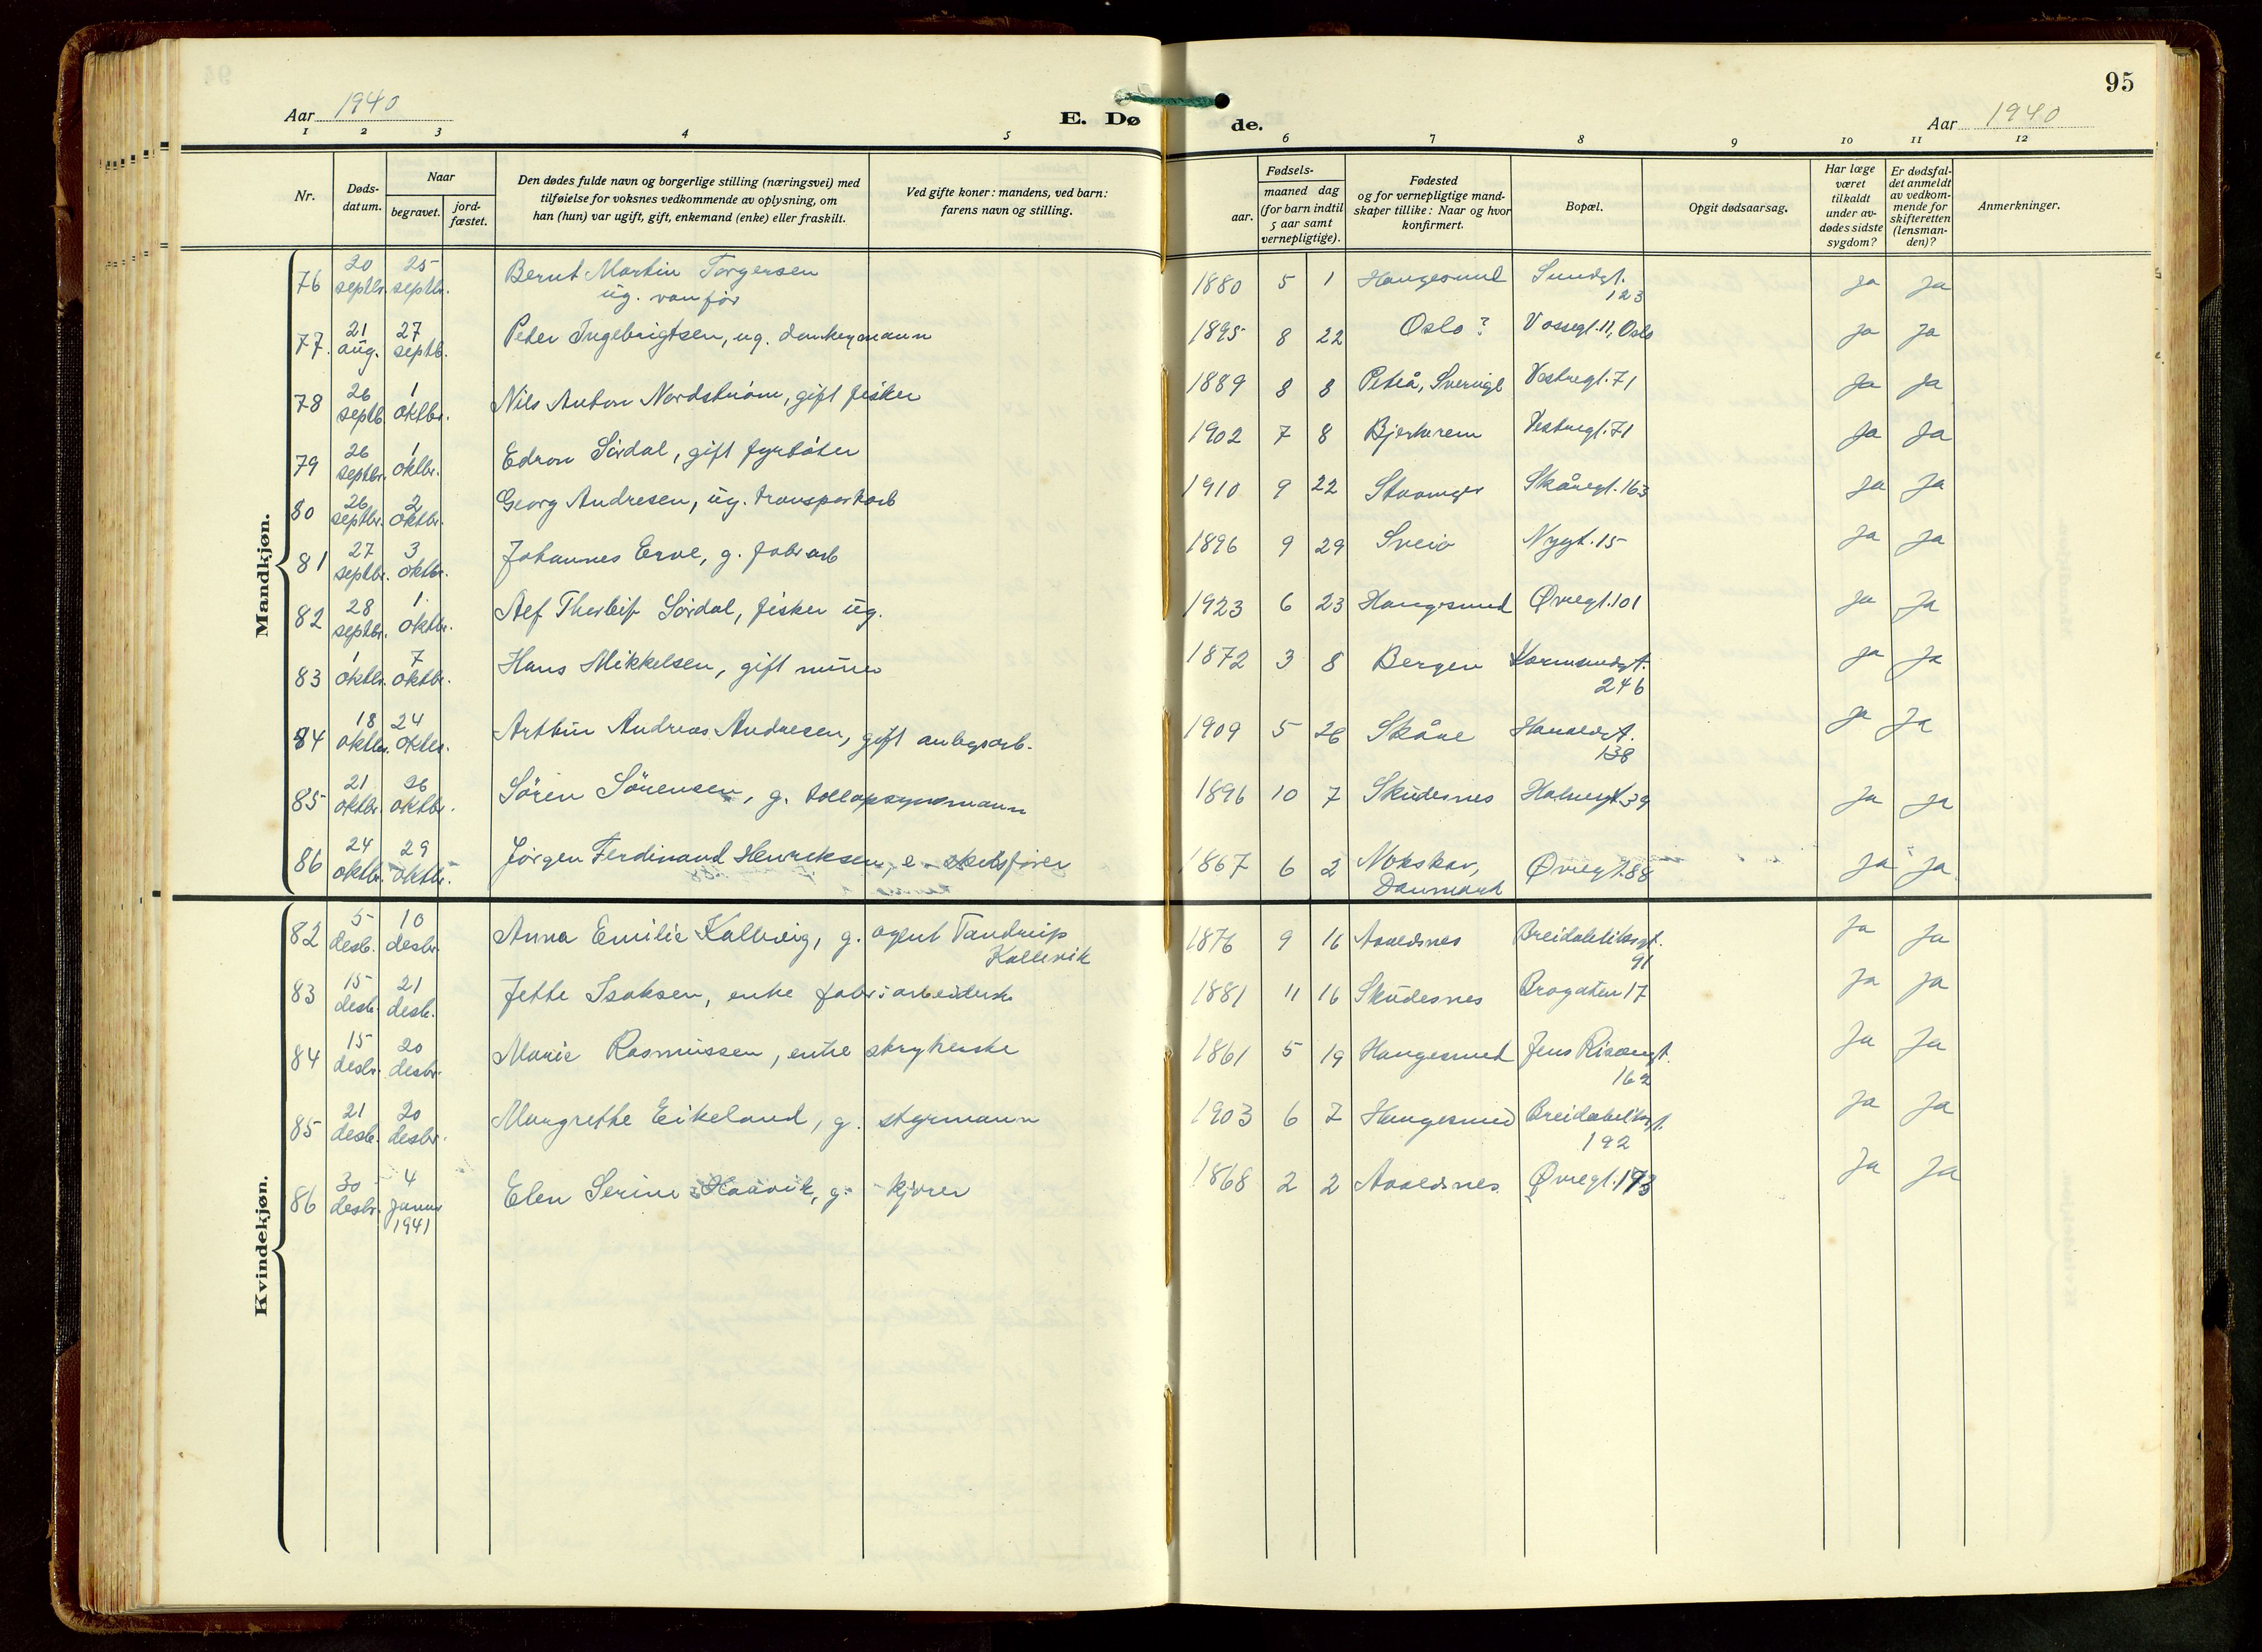 95
Aar 1940
E. Dø
de.
Aar 1940
1 2 3 4 5 6 7 8 9 10 11 12
Nr.
Døds-
datum.
Naar
begravet.
jord-
fæstet.
Den dødes fulde navn og borgerlige stilling (næringsvei) med
tilføielse for voksnes vedkommende av oplysning, om
han (hun) var ugift, gift, enkemand (enke) eller fraskilt.
Ved gifte koner: mandens, ved barn:
farens navn og stilling.
Fødsels-
aar.
maaned dag
(for barn indtil
5 aar samt
vernepligtige).
Fødested
og for vernepligtige mand-
skaper tillike: Naar og hvor
konfirmert.
Bopæl.
Opgit dødsaarsag.
Har læge
været
tilkaldt
under av-
dødes sidste
sygdom?
Er dødsfal-
det anmeldt
av vedkom-
mende for
skifteretten
(lensman-
den)?
Anmerkninger.
Mandkjøn.
76 20 septbr. 25 septbr. Bernt Martin Torgersen 1880 5 1 Haugesund Sundgt. ja ja
ug. vanfør 123
77. 21 aug. 27 septb. Peter Ingebrigtsen, ug. donkeymann 1895 8 22 Oslo? Vossegt. 11, Oslo ja ja
78 26 septb 1 oktbr. Nils Anton Nordstrøm, gift fisker 1889 8 8 Piteå, Sverige Vestregt. 71 ja ja
79 26 septbr. 1 oktbr. Edvon Sørdal, gift fyrbøter 1902 7 8 Bjerkrem Vestregt. 71 ja ja
80 26 septbr. 2 oktbr. Georg Andresen, ug. transportarb 1910 9 22 Stavanger Skåregt. 163 ja ja
81 27 septbr. 3 oktbr. Johannes Erve, g. fabr arb 1896 9 29 Sveio Nygt. 15 ja ja
82 28 septbr. 1 oktbr. Alf Thorleif Sørdal, fisker ug. 1923 6 23 Haugesund Øvregt. 101 ja ja
83 1 oktbr. 7 oktbr. Hans Mikkelsen, gift murer 1872 3 8 Bergen Karmsundgt. ja ja
246
84 18 oktbr. 24 oktbr. Arthur Andreas Andresen, gift anlegsarb. 1909 5 26 Skåre Haraldgt. ja ja
138
85 21 oktbr. 26 oktbr. Søren Sørensen, g. tollopsynsmann 1896 10 7 Skudesnes 39 ja ja
86 24 oktbr. 29 oktbr. Jørgen Ferdinand Henriksen, e 1867 6 2 Nakskov, Øvregt. 88 ja ja
Danmark
Kvindekjøn.
82 5 desb. 10 desbr. Anna Emilie Kallevig, g. agent Tandrup 1876 9 16 Avaldsnes Breidablikgt. ja ja
Kallevik 91
83 15 desb. 21 desb. Jette Isaksen, enke fabr: arbeiderske 1881 11 16 Skudesnes Brogaten 17 ja ja
84 15 desbr. 20 desbr. Marie Rasmussen, enke strykerske 1861 5 19 Haugesund Jens Risøengt. ja ja
162
85 21 desb. 20 desbr. Margrethe Eikeland, g. styrmann 1903 6 7 Haugesund Breidablikgt. ja ja
192
86 30 desbr. 4 januar Elen Serine Haavik, g. kjører 1868 2 2 Avaldsnes Øvregt. 173 ja ja
1941